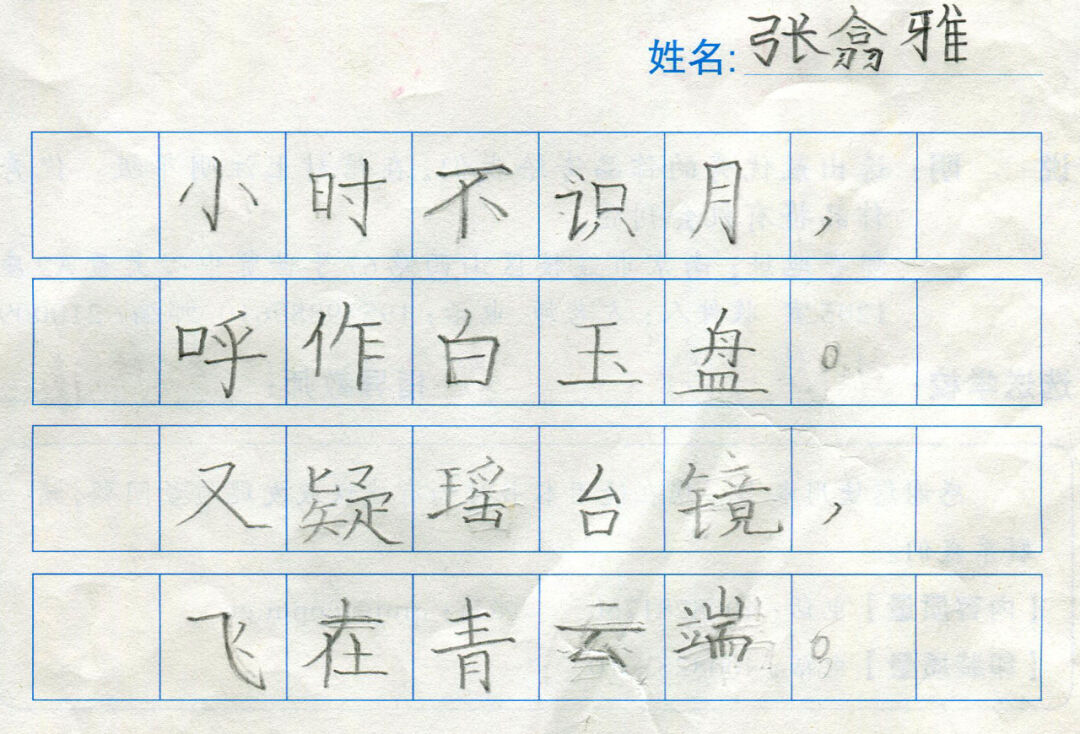 姓名: 张翕雅
小时不识月，
呼作白玉盘。
又疑瑶台镜，
飞在青云端。